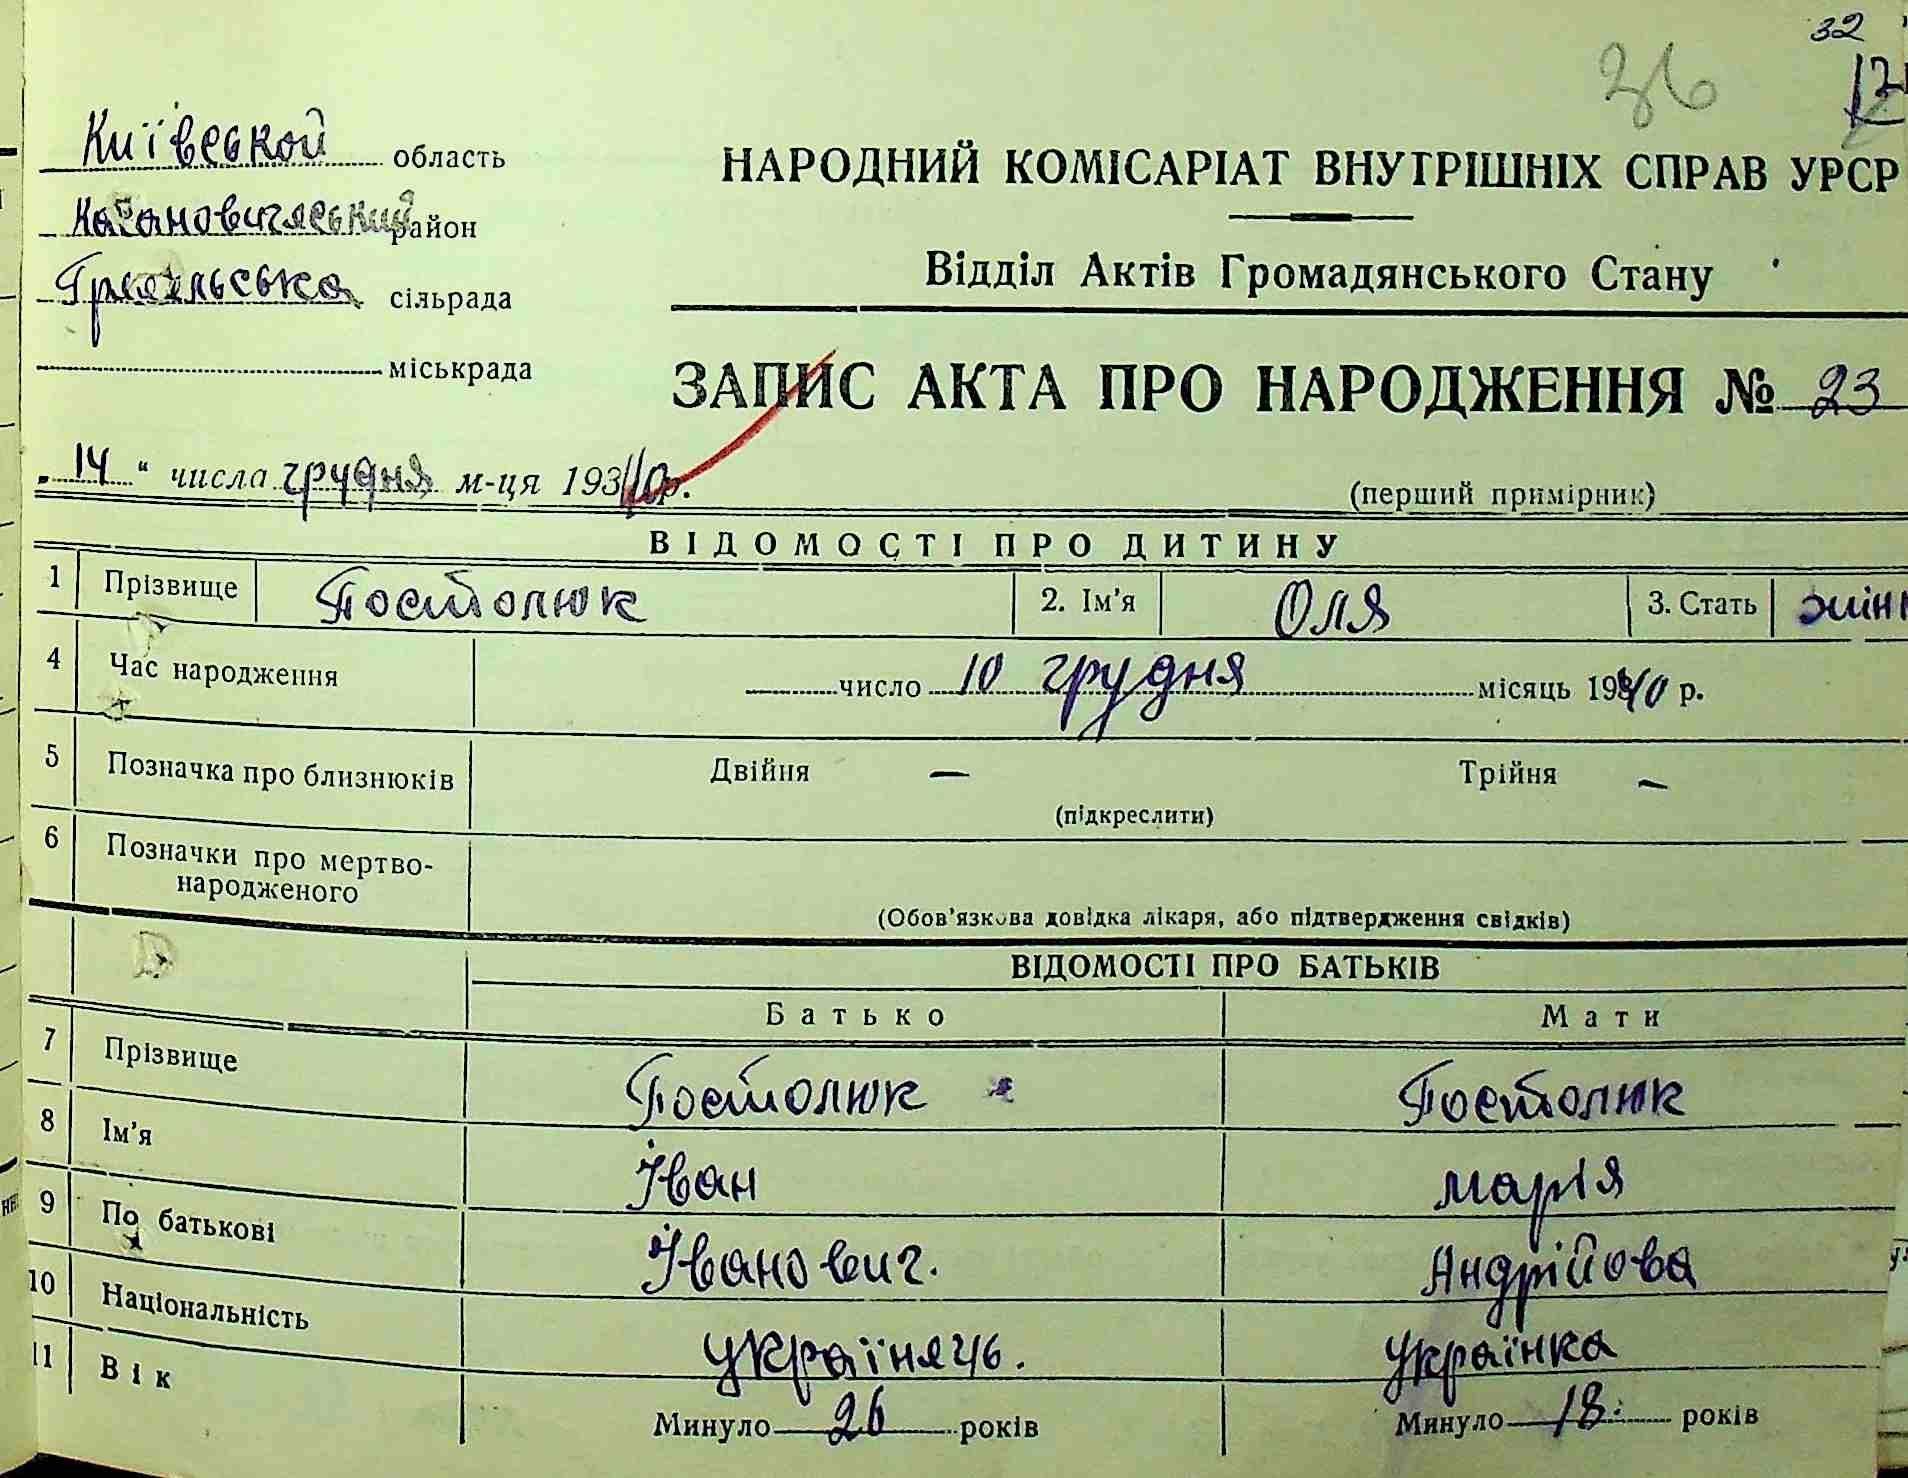 32
36
12
Київської область
Кагановичяський район
сільрада
міськрада
НАРОДНИЙ КОМІСАРІАТ ВНУТРІШНІХ СПРАВ УРСР
Відділ Актів Громадянського Стану
ЗАПИС АКТА ПРО НАРОДЖЕННЯ № 23
„14“ числа грудня м-ця 193 40 р.
(перший примірник)
ВІДОМОСТІ ПРО ДИТИНУ
1 Прізвище Постолюк 2. Ім’я Оля 3. Стать жін
4 Час народження число 10 грудня місяць 19340 р.
5 Позначка про близнюків Двійня — Трійня —
(підкреслити)
6 Позначки про мертво-
народженого
(Обов’язкова довідка лікаря, або підтвердження свідків)
ВІДОМОСТІ ПРО БАТЬКІВ
Батько Мати
7 Прізвище Постолюк Постолюк
8 Ім’я Іван Марія
9 По батькові Іванович. Андрійова
10 Національність українячь. українка
11 Вік Минуло 26 років Минуло 18 років